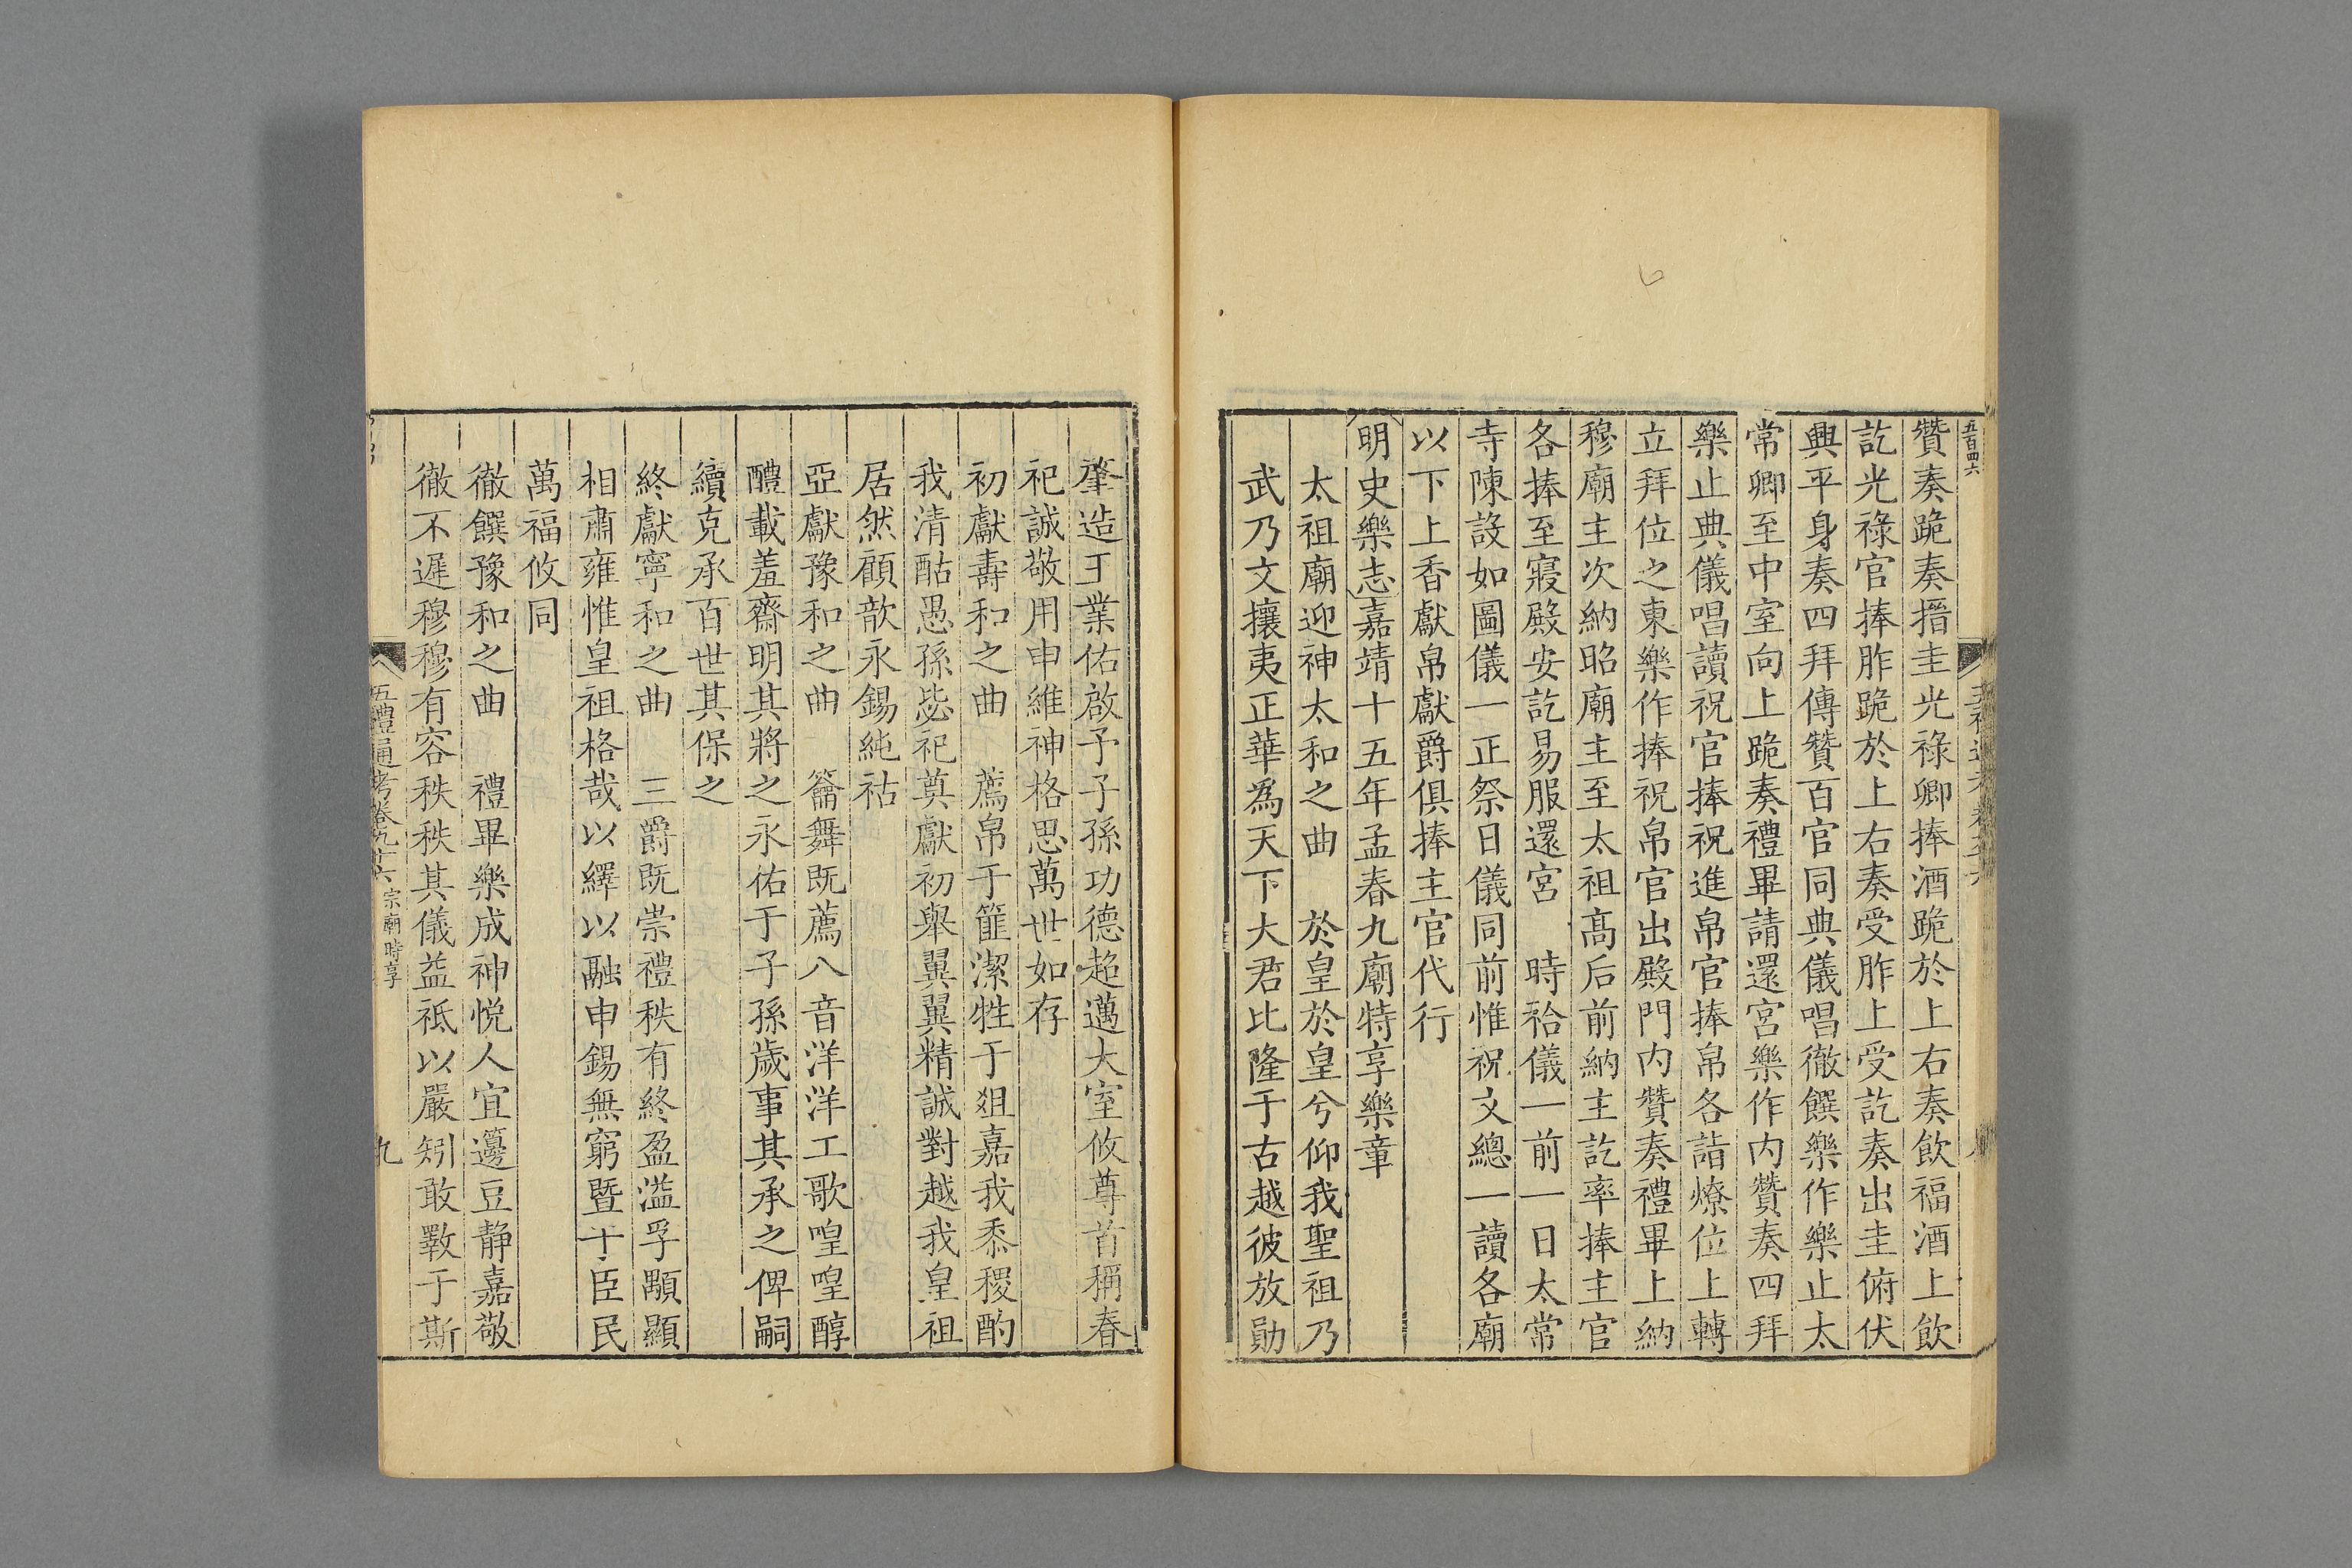 五百四六
贊奏跪奏搢圭光祿卿捧酒跪於上右奏飲福酒上飲
訖光祿官捧胙跪於上右奏受胙上受訖奏出圭俯伏
興平身奏四拜傳贊百官同典儀唱徹饌樂作樂止太
常卿至中室向上跪奏禮畢請還宮樂作內贊奏四拜
樂止典儀唱讀祝官捧祝進帛官捧帛各詣燎位上轉
立拜位之東樂作捧祝帛官出殿門內贊奏禮畢上納
穆廟主次納昭廟主至太祖高后前納主訖率捧主官
各捧至寢殿安訖易服還宮　時祫儀一前一日太常
寺陳設如圖儀一正祭日儀同前惟祝文總一讀各廟
以下上香獻帛獻爵俱捧主官代行
明史樂志嘉靖十五年孟春九廟特享樂章
太祖廟迎神太和之曲　於皇於皇兮仰我聖祖乃
武乃文攘夷正華為天下大君比隆于古越彼放勛
肇造王業佑啟予子孫功德超邁大室攸尊首稱春
祀誠敬用申維神格思萬世如存
初獻壽和之曲　薦帛于篚潔牲于俎嘉我黍稷酌
我清酤愚孫毖祀奠獻初舉翼翼精誠對越我皇祖
居然顧歆永錫純祜
亞獻豫和之曲　籥舞既薦八音洋洋工歌喤喤醇
醴載羞齋明其將之永佑于子孫歲事其承之俾嗣
續克承百世其保之
終獻寧和之曲　三爵既崇禮秩有終盈溢孚顒顯
相肅雍惟皇祖格哉以繹以融申錫無窮暨于臣民
萬福攸同
徹饌豫和之曲　禮畢樂成神悅人宜籩豆静嘉敬
徹不遲穆穆有容秩秩其儀益祗以嚴矧敢斁于斯
五禮通考卷九十六 宗廟時享 九